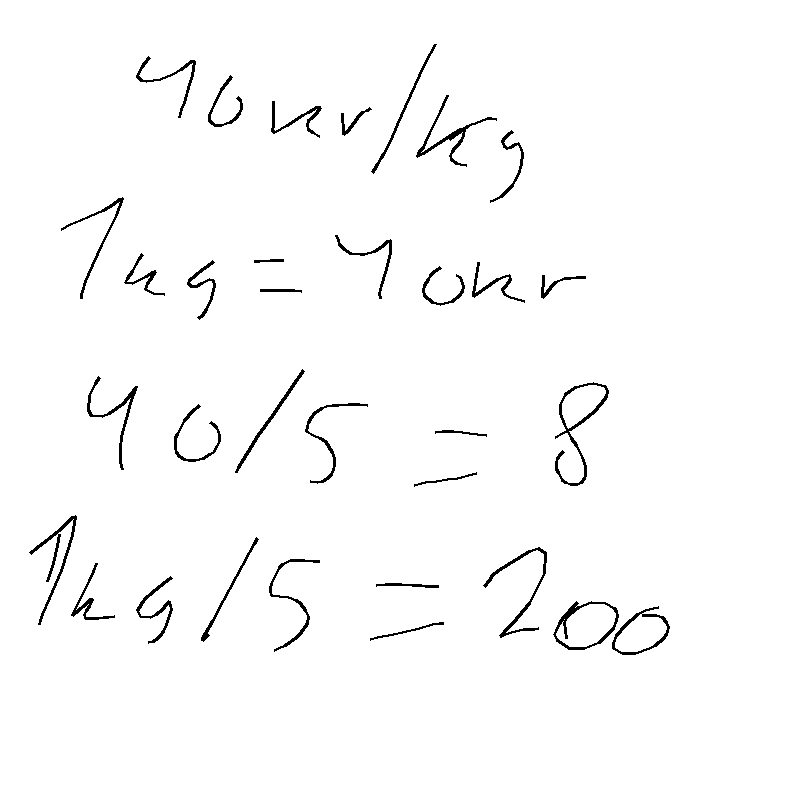 40kr/kg
1kg = 40kr
40/5 = 8
1kg/5 = 200